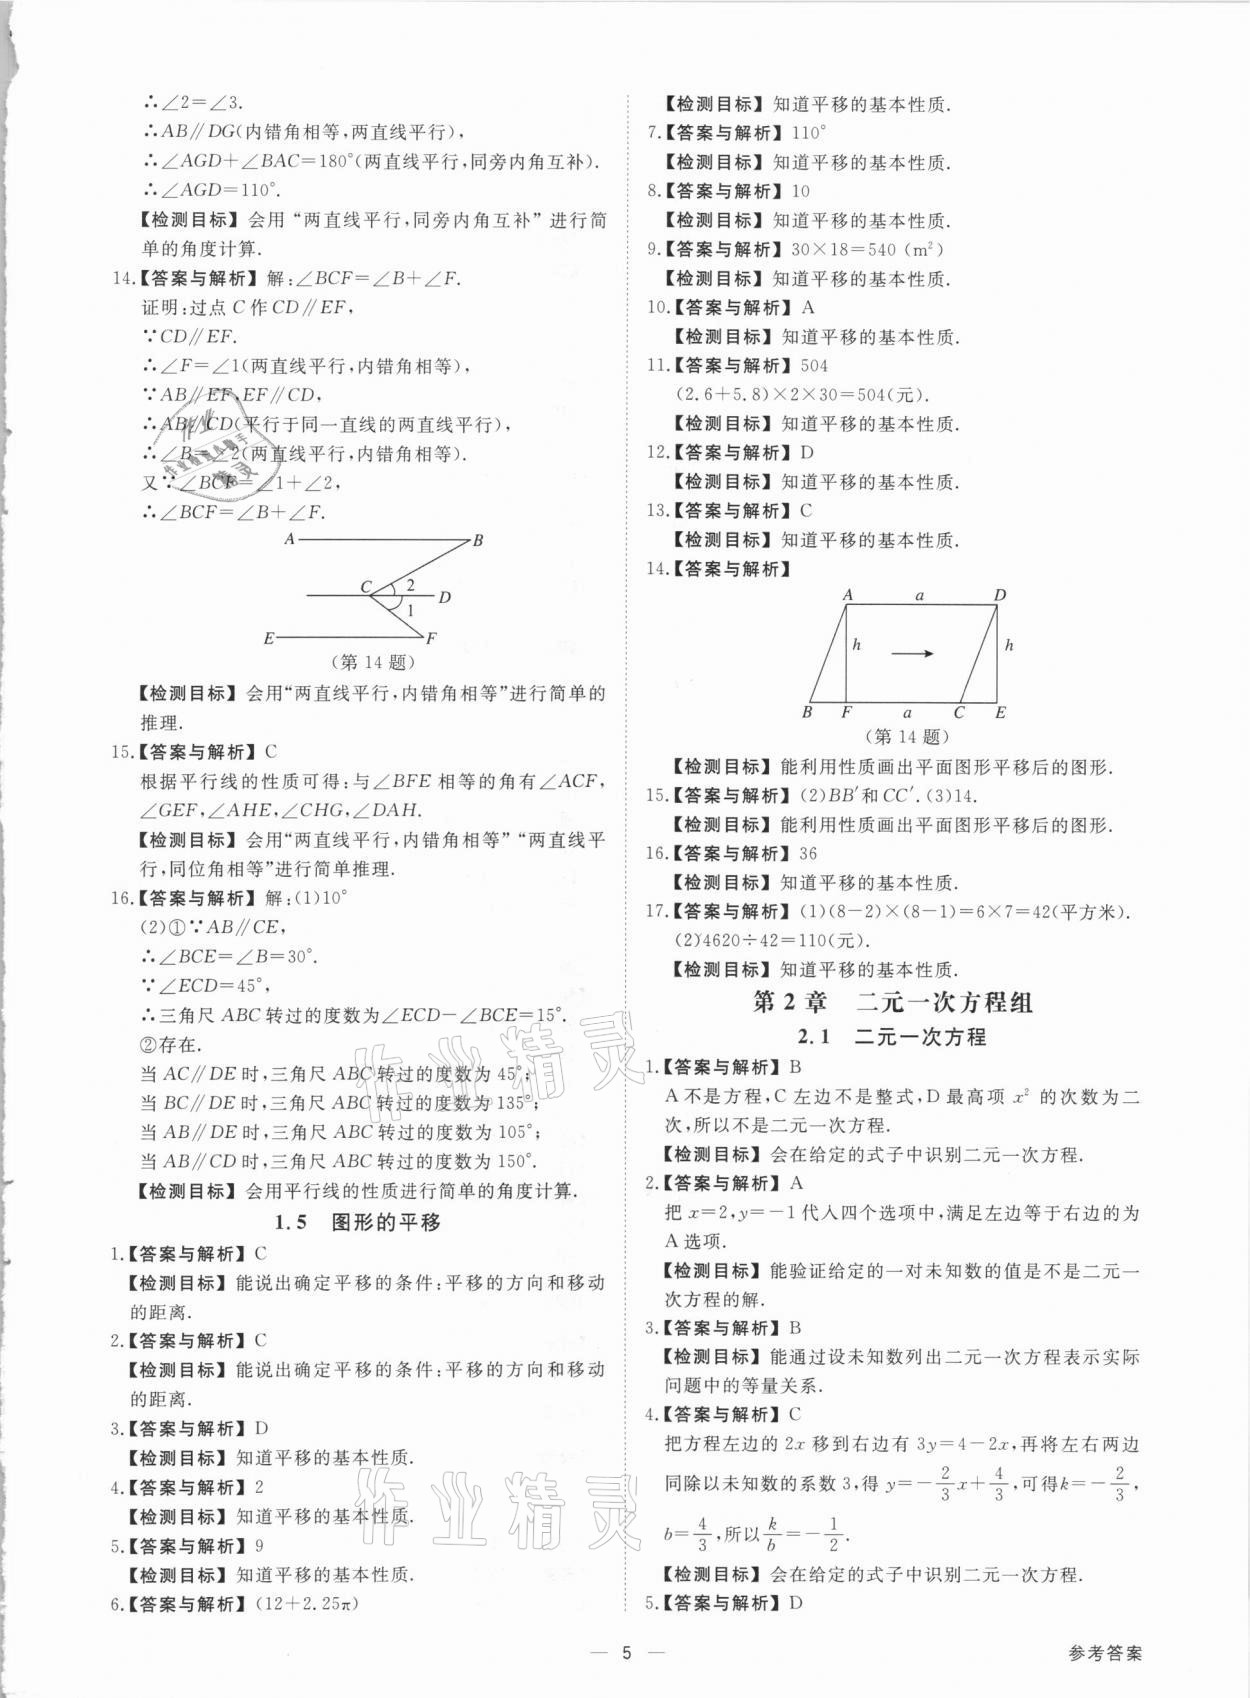 ∴∠2=∠3.
∴AB∥DG(内错角相等,两直线平行),
∴∠AGD+∠BAC=180°(两直线平行,同旁内角互补).
∴∠AGD=110°.
【检测目标】会用“两直线平行,同旁内角互补”进行简
单的角度计算.
14.【答案与解析】解:∠BCF=∠B+∠F.
证明:过点C作CD∥EF,
∵CD∥EF.
∴∠F=∠1(两直线平行,内错角相等),
∵AB∥EF,EF∥CD,
∴AB∥CD(平行于同一直线的两直线平行),
∴∠B=∠2(两直线平行,内错角相等).
又∵∠BCF=∠1+∠2,
∴∠BCF=∠B+∠F.
A B
C 2 D
1
E F
(第14题)
【检测目标】会用“两直线平行,内错角相等”进行简单的
推理.
15.【答案与解析】C
根据平行线的性质可得:与∠BFE相等的角有∠ACF,
∠GEF,∠AHE,∠CHG,∠DAH.
【检测目标】会用“两直线平行,内错角相等”“两直线平
行,同位角相等”进行简单推理.
16.【答案与解析】解:(1)10°
(2)①∵AB∥CE,
∴∠BCE=∠B=30°.
∵∠ECD=45°,
∴三角尺ABC转过的度数为∠ECD-∠BCE=15°.
②存在.
当AC∥DE时,三角尺ABC转过的度数为45°;
当BC∥DE时,三角尺ABC转过的度数为135°;
当AB∥DE时,三角尺ABC转过的度数为105°;
当AB∥CD时,三角尺ABC转过的度数为150°.
【检测目标】会用平行线的性质进行简单的角度计算.
1.5 图形的平移
1.【答案与解析】C
【检测目标】能说出确定平移的条件:平移的方向和移动
的距离.
2.【答案与解析】C
【检测目标】能说出确定平移的条件:平移的方向和移动
的距离.
3.【答案与解析】D
【检测目标】知道平移的基本性质.
4.【答案与解析】2
【检测目标】知道平移的基本性质.
5.【答案与解析】9
【检测目标】知道平移的基本性质.
6.【答案与解析】(12+2.25π)
【检测目标】知道平移的基本性质.
7.【答案与解析】110°
【检测目标】知道平移的基本性质.
8.【答案与解析】10
【检测目标】知道平移的基本性质.
9.【答案与解析】30×18=540 (m²)
【检测目标】知道平移的基本性质.
10.【答案与解析】A
【检测目标】知道平移的基本性质.
11.【答案与解析】504
(2.6+5.8)×2×30=504(元).
【检测目标】知道平移的基本性质.
12.【答案与解析】D
【检测目标】知道平移的基本性质.
13.【答案与解析】C
【检测目标】知道平移的基本性质.
14.【答案与解析】
A a D
h h
B F a C E
(第14题)
【检测目标】能利用性质画出平面图形平移后的图形.
15.【答案与解析】(2)BB′和CC′.(3)14.
【检测目标】能利用性质画出平面图形平移后的图形.
16.【答案与解析】36
【检测目标】知道平移的基本性质.
17.【答案与解析】(1)(8-2)×(8-1)=6×7=42(平方米).
(2)4620÷42=110(元).
【检测目标】知道平移的基本性质.
第2章 二元一次方程组
2.1 二元一次方程
1.【答案与解析】B
A不是方程,C左边不是整式,D最高项x²的次数为二
次,所以不是二元一次方程.
【检测目标】会在给定的式子中识别二元一次方程.
2.【答案与解析】A
把x=2,y=-1代入四个选项中,满足左边等于右边的为
A选项.
【检测目标】能验证给定的一对未知数的值是不是二元一
次方程的解.
3.【答案与解析】B
【检测目标】能通过设未知数列出二元一次方程表示实际
问题中的等量关系.
4.【答案与解析】C
把方程左边的2x移到右边有3y=4-2x,再将左右两边
同除以未知数的系数3,得y=-2/3x+4/3,可得k=-2/3,
b=4/3,所以k/b=-1/2.
【检测目标】会在给定的式子中识别二元一次方程.
5.【答案与解析】D
— 5 —
参考答案
作业精灵
作业精灵